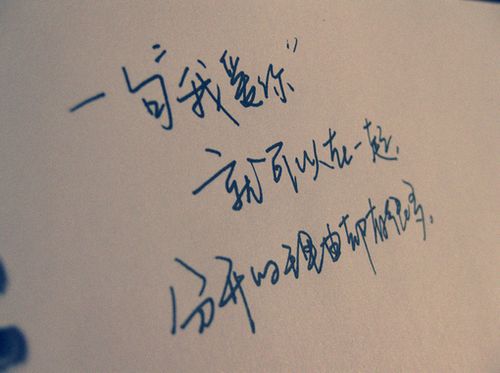 一句“我爱你”
就可以在一起、
分开的理由却有很多、